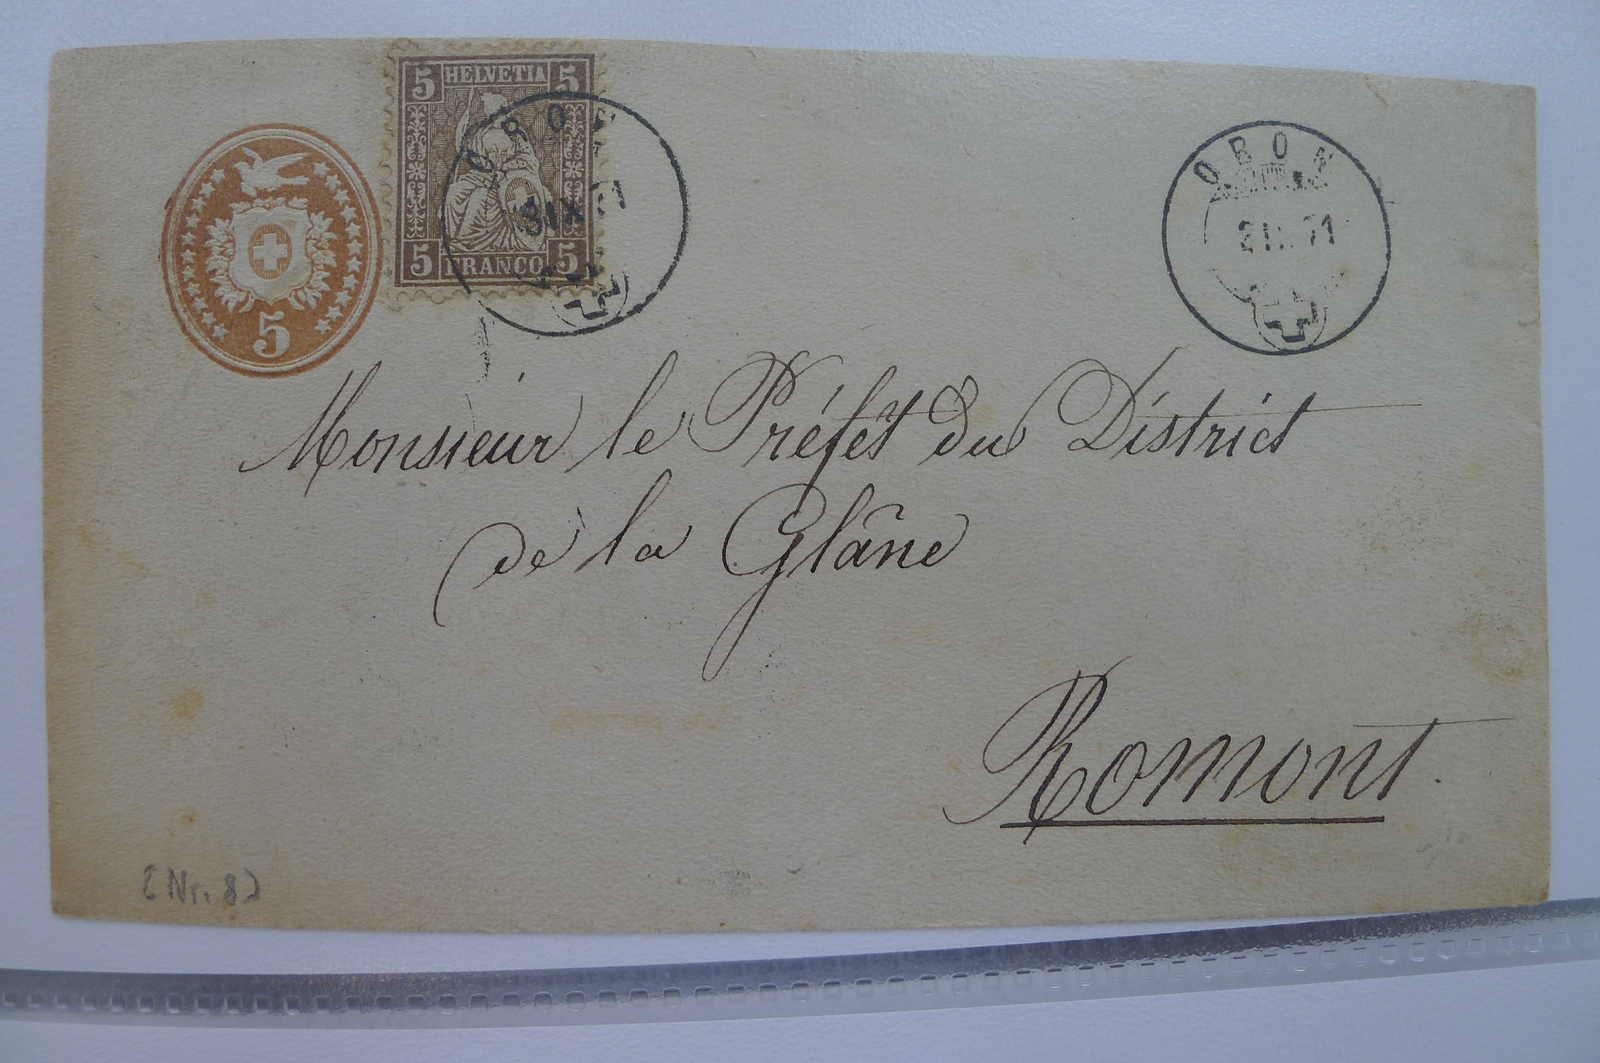 5 HELVETIA 5
5 FRANCO 5
5
ORON
ORON
71
Monsieur le Préfet du District
de la Glâne
Romont
(Nr. 8)